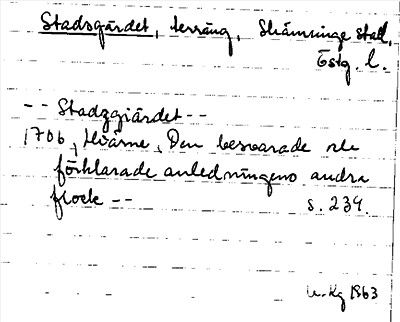 Stadsgärdet, terräng, Skänninge stad,
Östg. l.
-- Stadzgiärdet --
1706, Hiärne, Den besvarade och
förklarade anledningens andra
flock -- s. 234.
1963